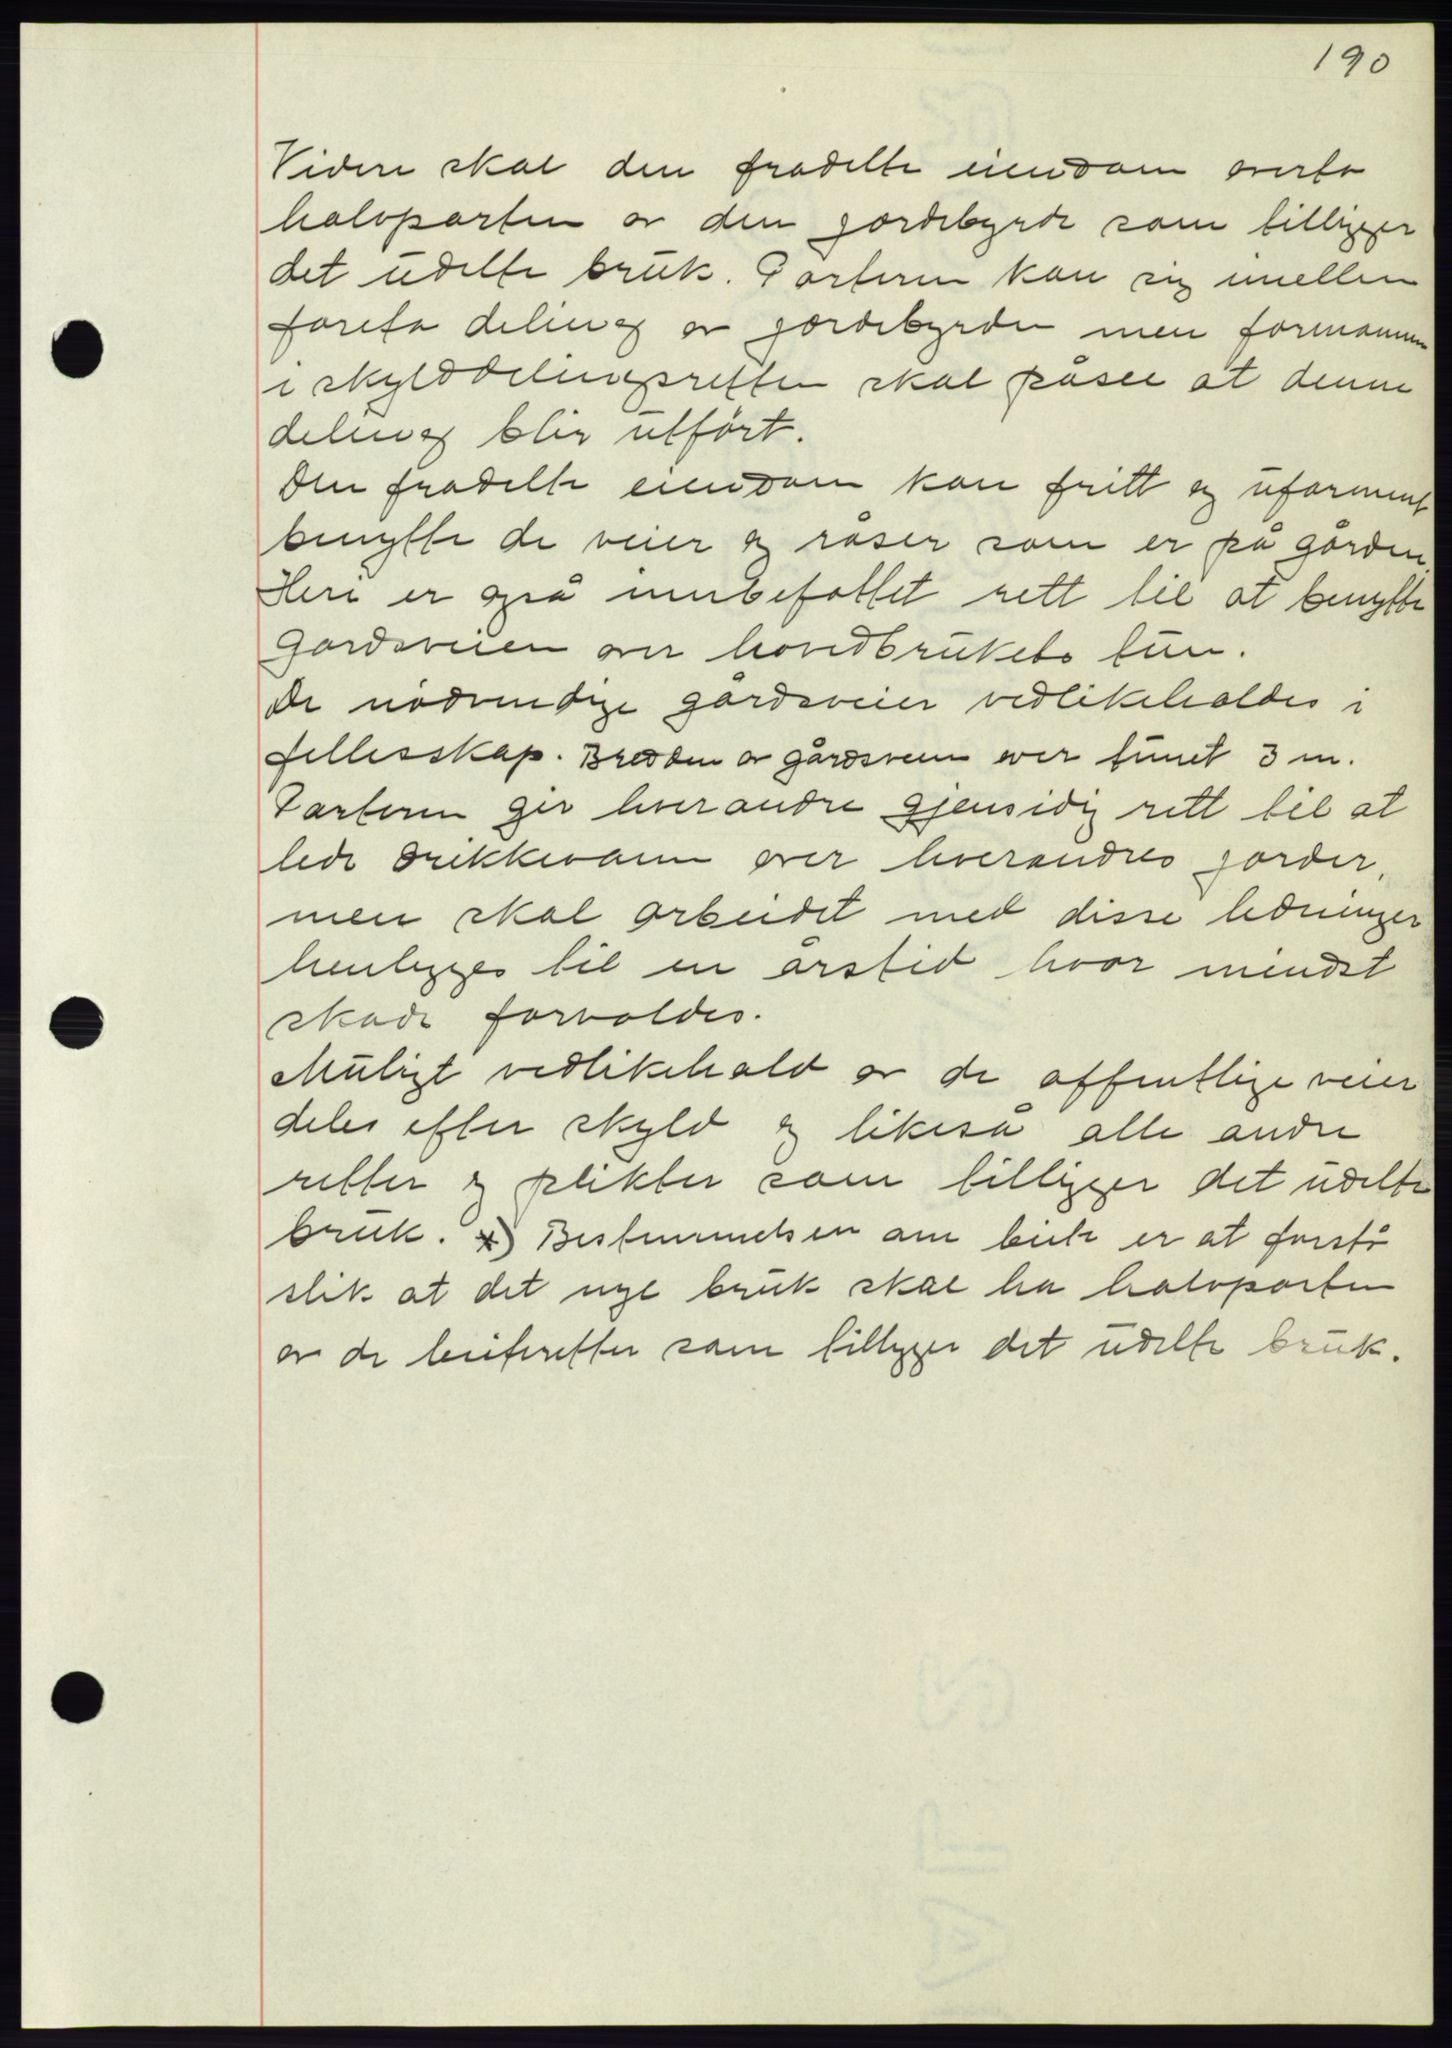 190
Videre skal den fradelte eiendom overta
halvparten av den gjordebyrde som tilligger
det udelte bruk. Parterne kan sig imellem
foreta deling av gjordebyrden men formannen
i skylddelingsretten skal påsee at denne
deling blir utført.
Den fradelte eiendom kan fritt og uforment
benytte de veier og råser som er på gården.
Heri er også innbefattet rett til at benytte
gardsveien over hovedbrukets tun.
De nødvendige gårdsveier vedlikeholdes i
fellesskap. Bredden av gårdsveien over tunet 3 m.
Parterne gir hverandre gjensidig rett til at
lede drikkevann over hverandres jorder,
men skal arbeidet med disse ledninger
henlegges til en årstid hvor mindst
skade forvoldes.
Muligt vedlikehold av de offentlige veier
deles efter skyld og likeså alle andre
retter og plikter som tilligger det udelte
bruk. *) Bestemmelsen om beite er at forstå
slik at det nye bruk skal ha halvparten
av de beiteretter som tilligger det udelte bruk.